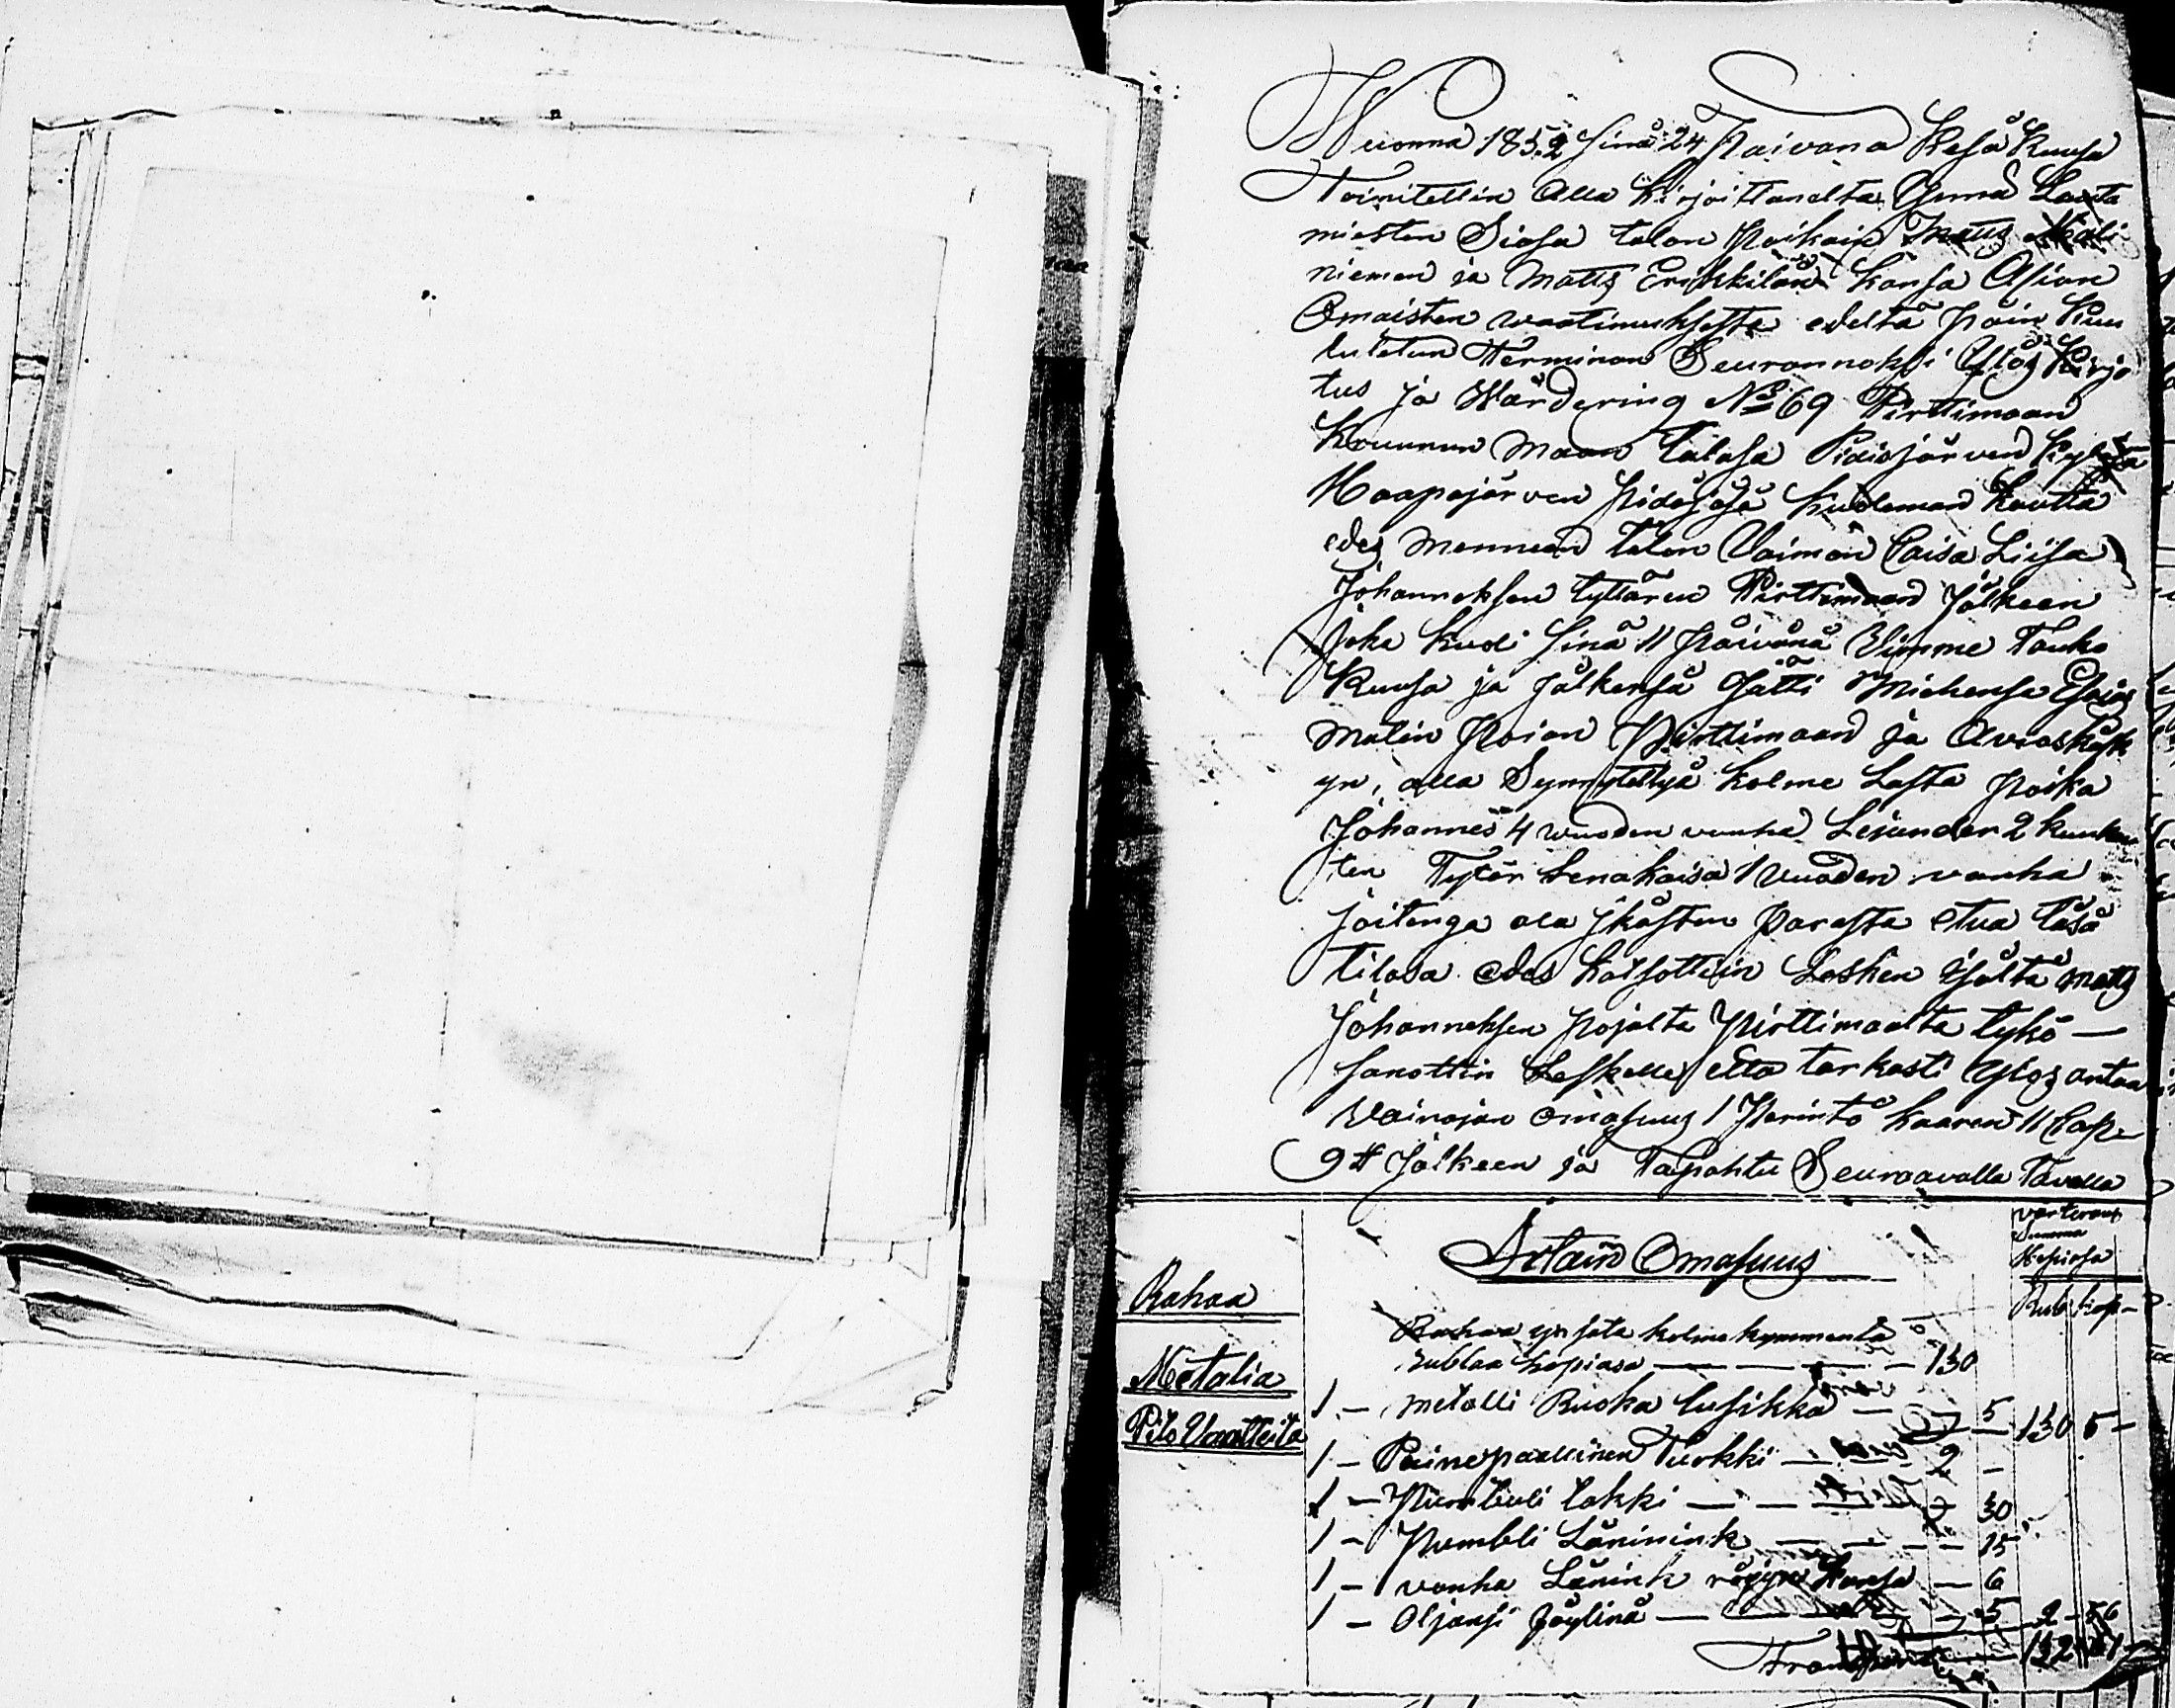 Wuonna 1852 sinä 24 päivana Kesä Kuusa
Toimitettin alla Kirjoittanelta Ynnä Lauta
miesten Siasa talon poikain Matts Mali
niemen ja Matts Erikkilän kansa Asian
Omaisten waatimuksesta edeltä päin Kuu
lutetun Terminan Seurannoksi Ylös Kirjo
tus ja Wärdering No 69 Pirttimaan
Kruunun Maan talosa Pidisjärven Kylasä
Haapajärven pidäjäsä kuoleman kautta
edes mennen talon Vaimon Caisa Liisa
Johanneksen tyttären Pirttimaan Jälkeen
Joka kuoli sinä 11 päivänä Viimme Touko
Kuusa ja jälkensä jätti Miehensä Esaias
Matin pojan Pirttimaan ja Avioskäsk
yn, alla Synnytettyä kolme Lasta poika
Johannes 4 wuoden vanha Lejander 2 kuukau
ten Tytär Lenakaisa 1 Vuoden vanha
joitenga ala jkäisten parasta etua täsä
tilasa edes katsottiin Lesken isältä Matts
Johanneksen pojalta Pirttimaalta tykö —
sanottin Leskelle että tarkasti Ylös antaa
Vainajan omasuus 1 Perintö kaaren 11 Cap:
9 § Jälkeen ja Tapahtu Seuraavalla Tavalla
värterous
Summa
Hopiasa
Rub. kop —
Irtain Omasuus
Rahaa
Rahaa yx sata kolme kymmentä
rublaa hopiasa — — — 130
Metalia
1 — metalli Ruoka lusikka — 5 — 130 5 —
Pito Vaatteita
1 — Painepaallinen Turkki — 2 —
1 — Pumbuli takki — — 30
1 — Pumbli Läninink — — 15
1 — vanha Länink — 6
1 — Oljansi Jöylinä — 5 2 - 56
Transport — 132 61